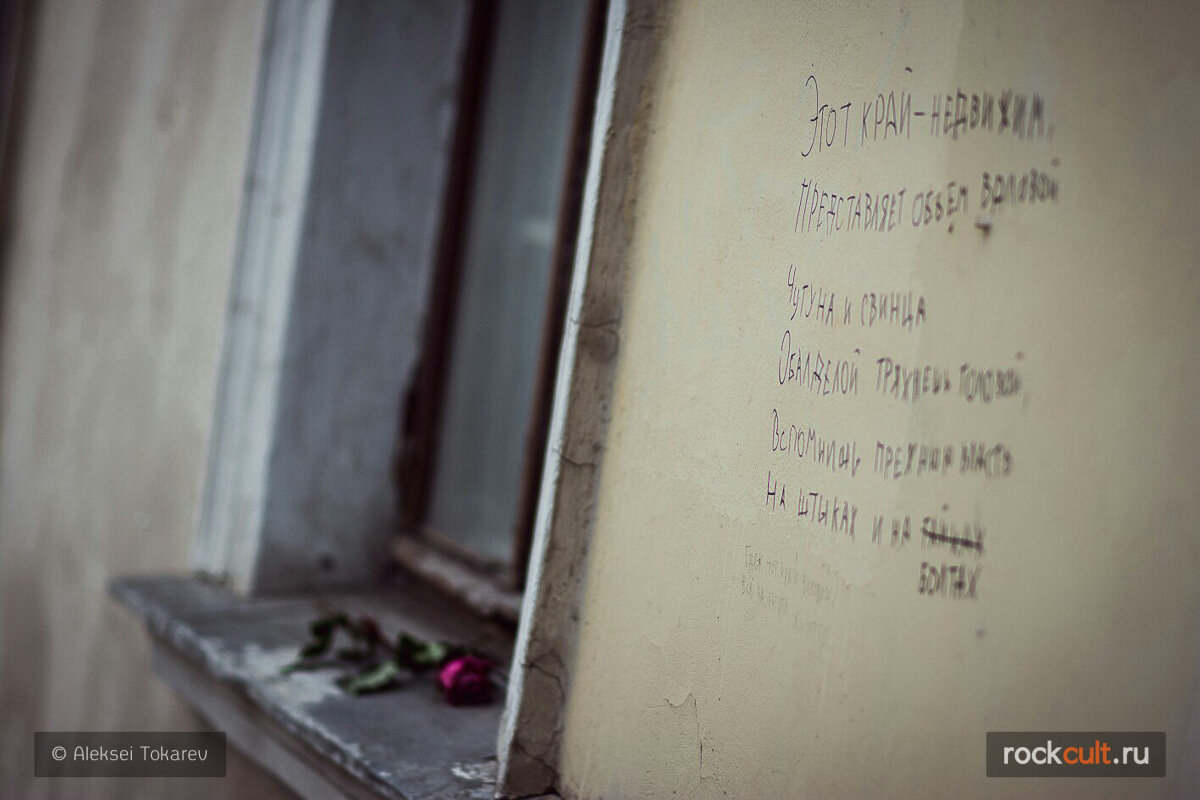 Этот край-недвижим,
Представляет объём валовой
Чугуна и свинца
Обалделой тряхнешь головой,
Вспомнишь прежнюю власть
На штыках и на гайках
болтах
© Aleksei Tokarev
rockcult.ru